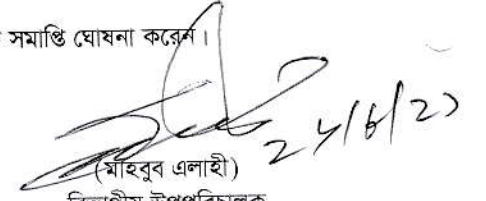 সমাপ্তি ঘোষনা করেন।
(মাহবুব এলাহী)
বিভাগীয় উপপরিচালক